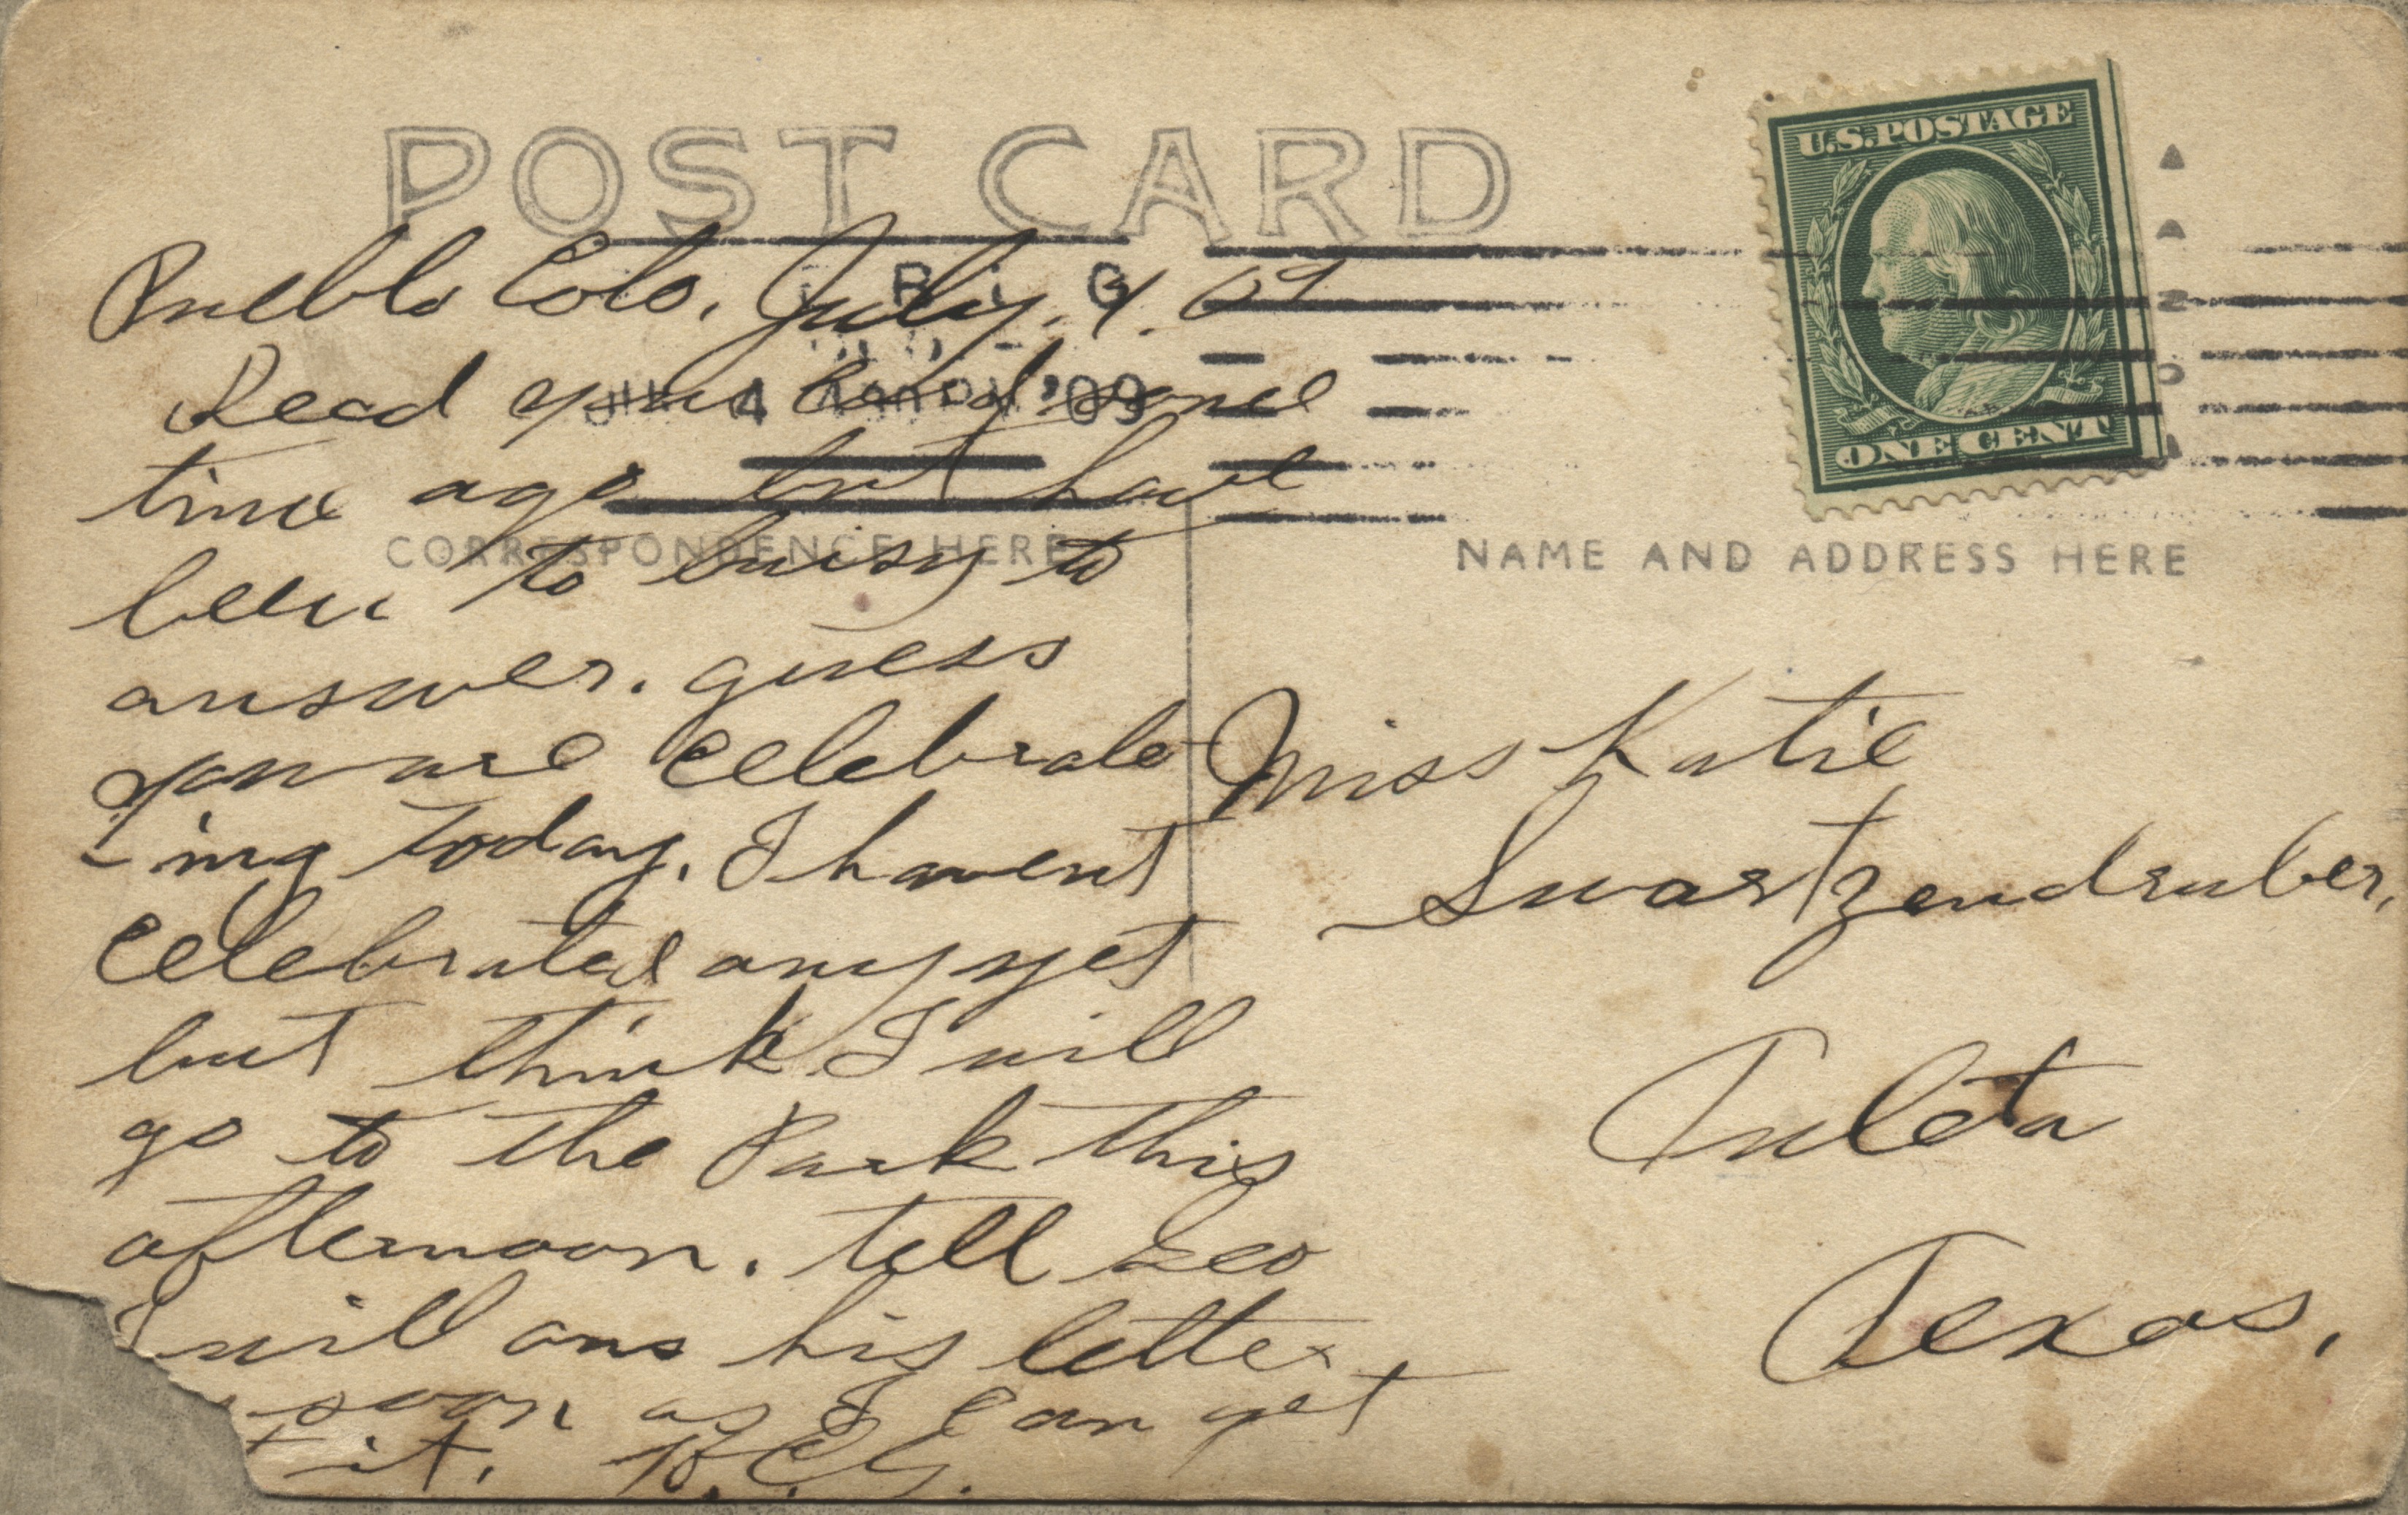 POST CARD
U.S. POSTAGE
ONE CENT
4
'09
CORRESPONDENCE HERE
NAME AND ADDRESS HERE
Pueblo Colo, July. 4. 09
Recd your card some
time ago but have
been to buisy to
answer. guess
you are Celebrate
-ing today. I havent
Celebrated any yet
but think I will
go to the Park this
afternoon. tell Leo
I will ans his letter
soon as I can get
it.
Miss Katie
Swartzendruber,
Tuleta
Texas,